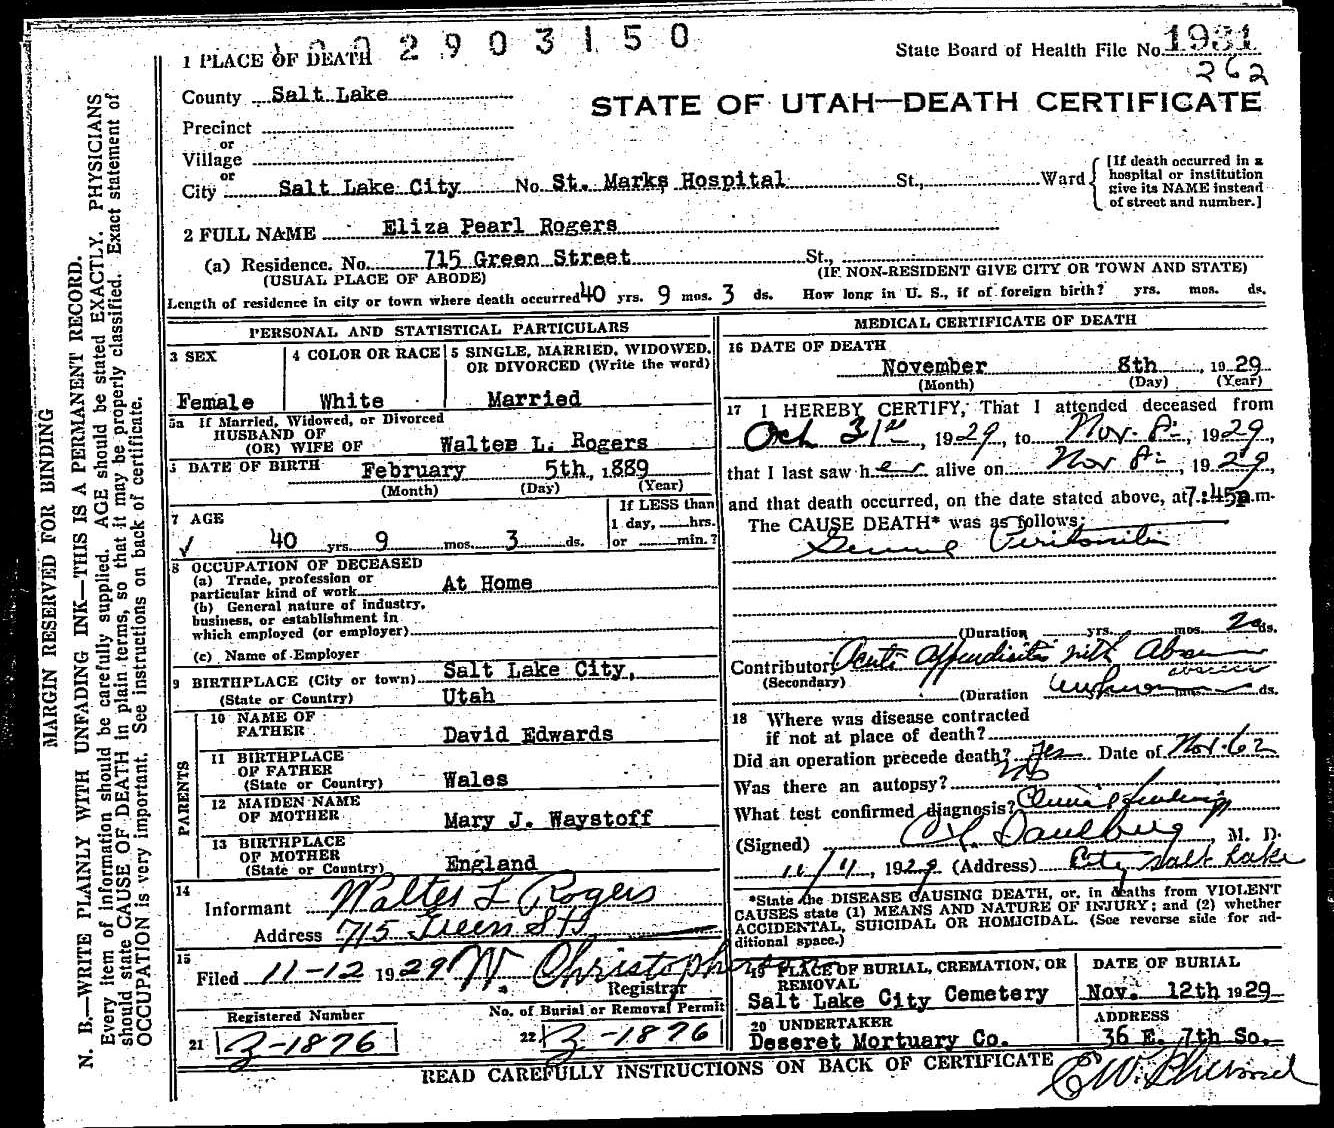 1002903150
1 PLACE OF DEATH
State Board of Health File No. 1931
262
County Salt Lake
STATE OF UTAH—DEATH CERTIFICATE
Precinct
or
Village
or
City Salt Lake City No. St. Marks Hospital St., Ward
[If death occurred in a
hospital or institution
give its NAME instead
of street and number.]
2 FULL NAME Eliza Pearl Rogers
(a) Residence. No. 715 Green Street St.,
(USUAL PLACE OF ABODE) (IF NON-RESIDENT GIVE CITY OR TOWN AND STATE)
Length of residence in city or town where death occurred 40 yrs. 9 mos. 3 ds. How long in U. S., if of foreign birth? yrs. mos. ds.
PERSONAL AND STATISTICAL PARTICULARS
3 SEX
Female
4 COLOR OR RACE
White
5 SINGLE, MARRIED, WIDOWED,
OR DIVORCED (Write the word)
Married
5a If Married, Widowed, or Divorced
HUSBAND OF
(OR) WIFE OF Walter L. Rogers
DATE OF BIRTH February 5th, 1889
(Month) (Day) (Year)
7 AGE
40 yrs. 9 mos. 3 ds.
If LESS than
1 day, hrs.
or min.?
8 OCCUPATION OF DECEASED
(a) Trade, profession or
particular kind of work At Home
(b) General nature of industry,
business, or establishment in
which employed (or employer)
(c) Name of Employer
9 BIRTHPLACE (City or town) Salt Lake City,
(State or Country) Utah
PARENTS
10 NAME OF
FATHER David Edwards
11 BIRTHPLACE
OF FATHER
(State or Country) Wales
12 MAIDEN NAME
OF MOTHER Mary J. Waystoff
13 BIRTHPLACE
OF MOTHER
(State or Country) England
14
Informant Walter L Rogers
Address 715 Green St
15
Filed 11-12 1929 W. Christopherson
Registrar
Registered Number
21 3-1876
No. of Burial or Removal Permit
22 3-1876
MEDICAL CERTIFICATE OF DEATH
16 DATE OF DEATH
November 8th, 1929
(Month) (Day) (Year)
17 I HEREBY CERTIFY, That I attended deceased from
Oct 31st, 1929, to Nov. 8, 1929,
that I last saw her alive on Nov 8, 1929,
and that death occurred, on the date stated above, at 7:45p.m.
The CAUSE DEATH* was as follows:
Peritonitis
(Duration yrs. mos. ds.
Contributory Acute Appendicitis with Abscess
(Secondary) abscess
(Duration Unknown mos. ds.
18 Where was disease contracted
if not at place of death?
Did an operation precede death? Yes Date of Nov. 62
Was there an autopsy? No
What test confirmed diagnosis? Clinical findings
(Signed) M. D.
11/11, 1929 (Address) City Salt Lake
*State the DISEASE CAUSING DEATH, or, in deaths from VIOLENT
CAUSES state (1) MEANS AND NATURE OF INJURY; and (2) whether
ACCIDENTAL, SUICIDAL OR HOMICIDAL. (See reverse side for ad-
ditional space.)
19 PLACE OF BURIAL, CREMATION, OR
REMOVAL
Salt Lake City Cemetery
DATE OF BURIAL
Nov. 12th 1929
20 UNDERTAKER
Deseret Mortuary Co.
ADDRESS
36 E. 7th So.
READ CAREFULLY INSTRUCTIONS ON BACK OF CERTIFICATE
MARGIN RESERVED FOR BINDING
N. B.—WRITE PLAINLY WITH UNFADING INK—THIS IS A PERMANENT RECORD.
Every item of information should be carefully supplied. AGE should be stated EXACTLY. PHYSICIANS
should state CAUSE OF DEATH in plain terms, so that it may be properly classified. Exact statement of
OCCUPATION is very important. See instructions on back of certificate.